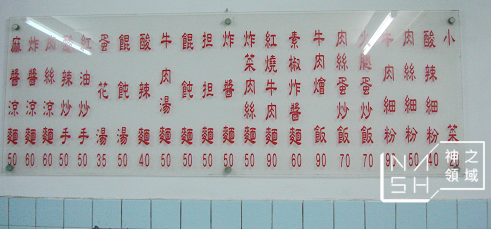 小菜
酸辣細粉 40
肉絲細粉 50
牛肉細粉
腿蛋炒飯 70
肉絲蛋炒飯 70
牛肉燴飯 90
素椒炸醬麵 60
紅燒牛肉麵 90
炸菜肉絲麵 50
炸醬麵 50
担担麵 50
餛飩麵 50
牛肉湯麵 50
酸辣麵 40
餛飩湯 50
蛋花湯 35
紅油炒手 50
酸辣炒手 50
肉絲涼麵 60
炸醬涼麵 60
麻醬涼麵 50
神之領域